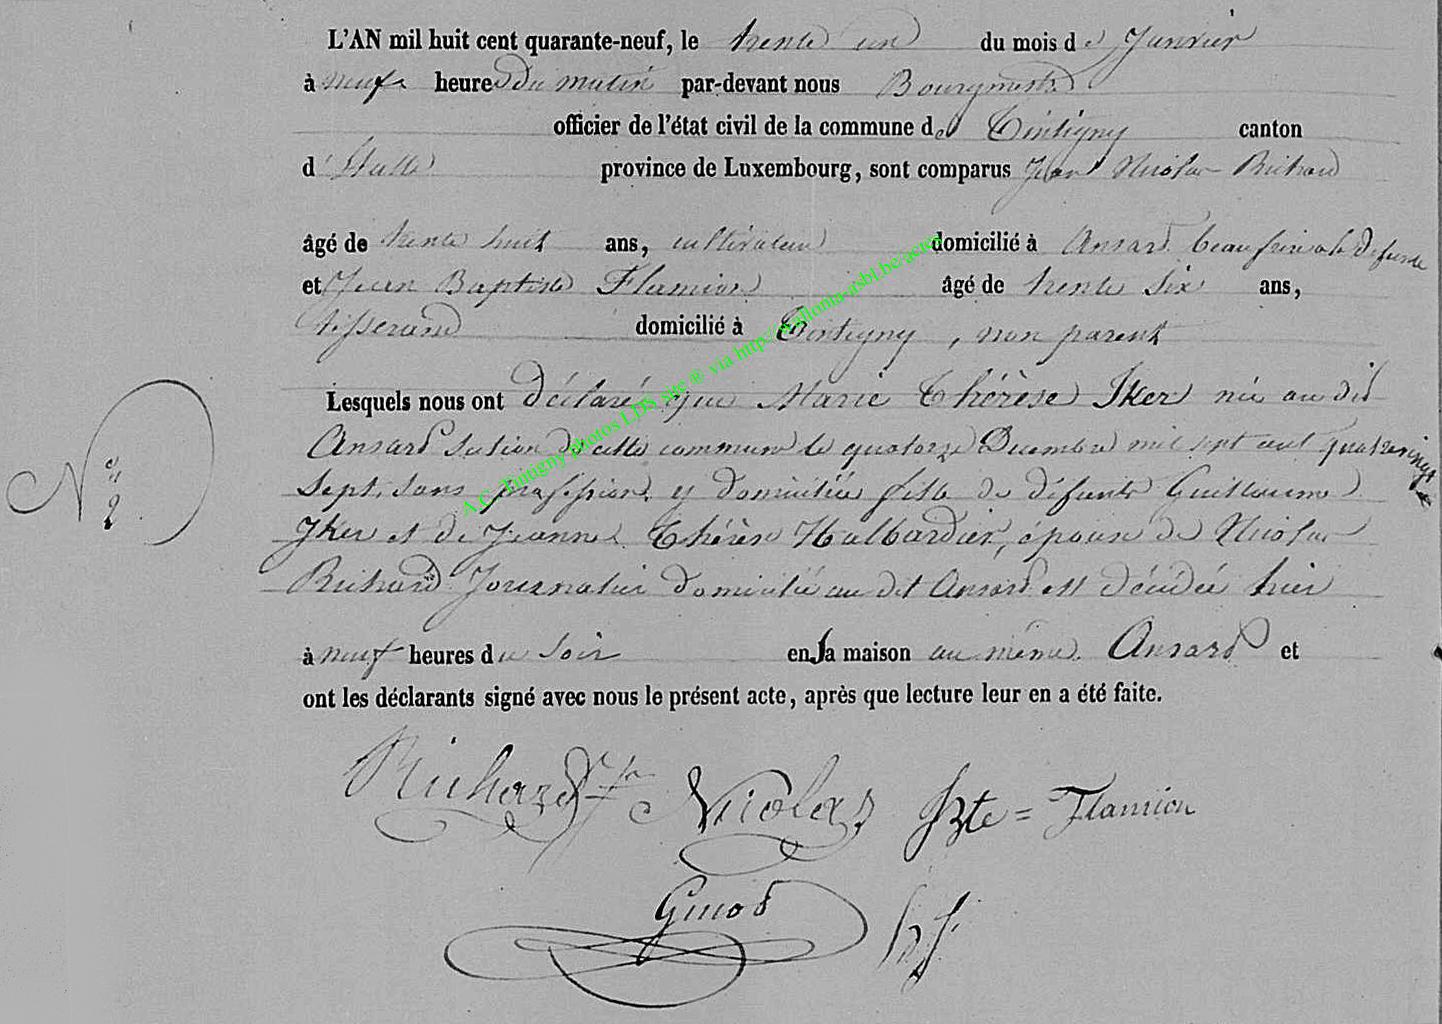 L'AN mil huit cent quarante-neuf, le trente un du mois de Janvier
à neuf heures du matin par-devant nous Bourgmestre
officier de l'état civil de la commune de Tintigny canton
d'Etalle province de Luxembourg, sont comparus Jean Nicolas Richard
âgé de trente huit ans, cultivateur domicilié à Ansart beaufrère de la défunte
et Jean Baptiste Flamion âgé de trente six ans,
tisserand domicilié à Tintigny, non parent
Lesquels nous ont déclaré que Marie Thérèse Iker née au dit
Ansard section de cette commune le quatorze Décembre mil sept cent quatrevingt
Sept, sans profession, y domiciliée fille de défunts Guillaume
Iker et de Jeanne Thérèse Halbardier, épouse de Nicolas
Richard Journalier domicilié au dit Ansard est décédée hier
à neuf heures du soir en sa maison au même Ansard et
ont les déclarants signé avec nous le présent acte, après que lecture leur en a été faite.
N° 2
Richard Jn Nicolas JBte = Flamion
Ginod
A.C. Tintigny photos LDS site ® via http://wallonia-asbl.be/actes